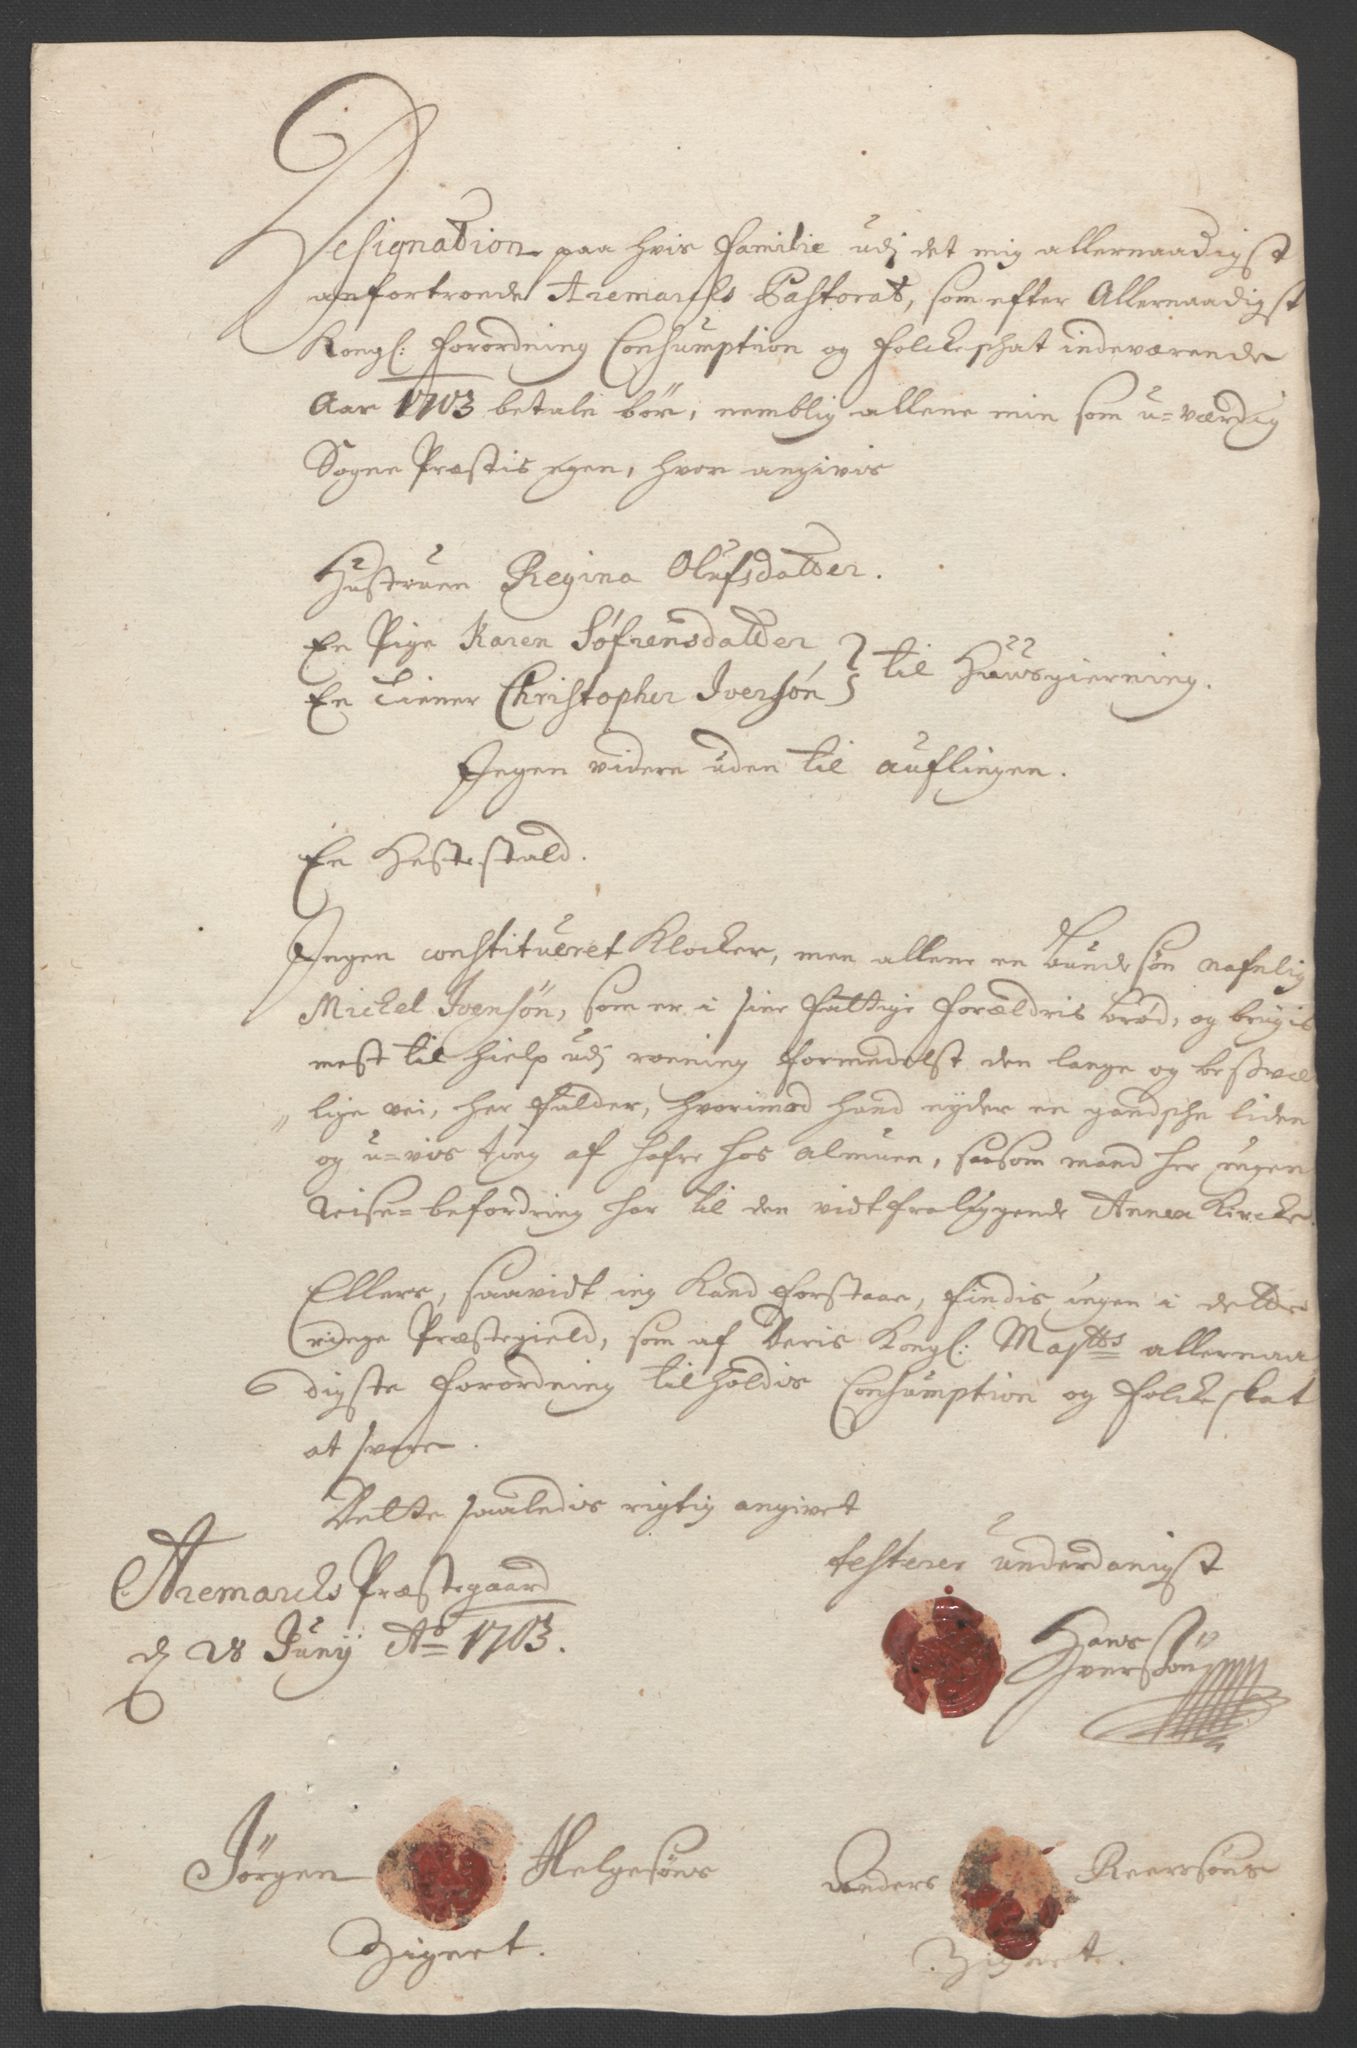 Designation paa hvis Familie udj det mig allernaadigst
anfortroede Aremarchs Pastorat, som efter Allernaadigst
Kongl: Forordning Consumption og Folckeschat indeværende
Aar 1703 betale bør, nemblig allene min som u=værdig
Sogne Præstis egen, hvor angivis
Hustruen Regina Olufsdatter.
En Pige Karen Søfrensdatter
En Tiener Christopher Iversøn } til Huusgierning.
Ingen videre uden til auflingen.
En Hestestald.
Ingen constitueret Klocker, men allene en bundesøn nafnlig
Michel Ivensøn, som er i sine fattige Forældris brød, og brugis
mest til hielp udj roening formedelst den lange og besvæ
lige vei, her falder, hvorimod hand nyder en gandsche liden
og u=vis ting af hafre hos almuen, saasom mand her ingen
Reise=befordring har til den vidtfraliggende Annex Kircke.
Ellers, saavidt ieg kand forstaar, findis ingen i dette
ringe Præstegield, som af Deris Kongl: Maytts allernaa
digste Forordning tilholdis Consumption og Folckeskat
at svare.
Dette saaledis rigtig angivet
testerer underdanigst
Aremarchs Præstegaard
d 28 Junij Ao 1703.
Hans
Iversøn
Jørgen Helgesøns
Zignet.
Anders Reerssøns
Zignet.